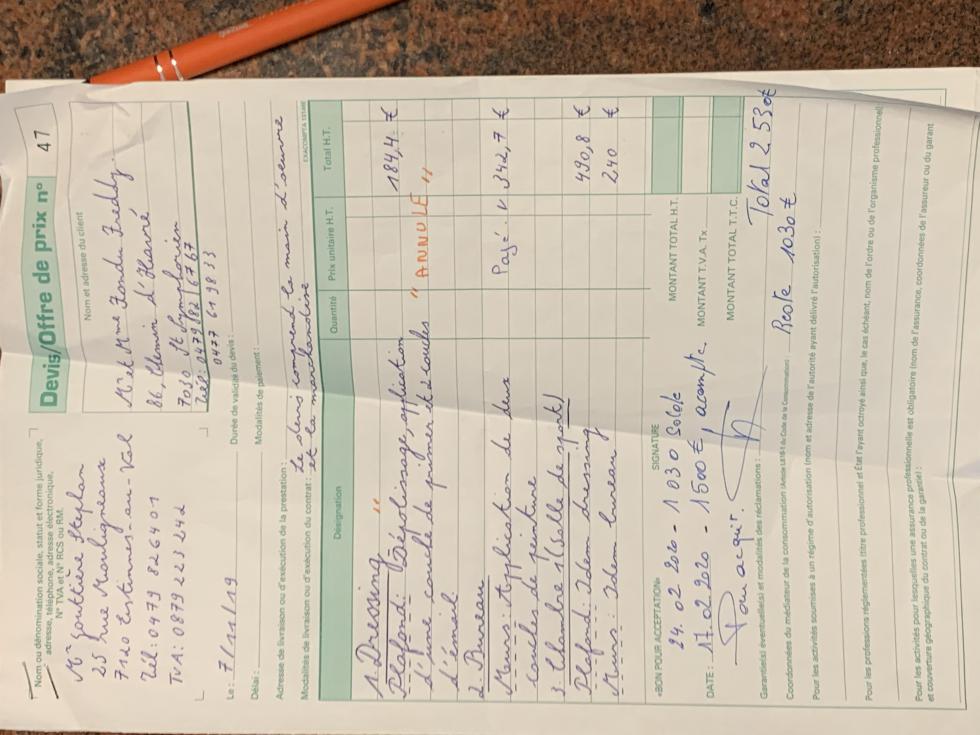 Devis/Offre de prix n° 47
Nom ou dénomination sociale, statut et forme juridique,
adresse, téléphone, adresse électronique,
N° TVA et N° RCS ou RM.
Mr Stéphan
25 rue
7120 Estinnes-au-Val
Tél: 0479 826401
TVA: 0879 223 242
Nom et adresse du client
Mr et Mme Fondu Freddy
86, Chemin d'Havré
7030 St Symphorien
Tél: 0479/82 67 67
Le : 7/11/19
Durée de validité du devis :
Délai :
Modalités de paiement :
Adresse de livraison ou d'exécution de la prestation :
Le devis comprend la main d'oeuvre
Modalités de livraison ou d'exécution du contrat : et la marchandise
Désignation Quantité Prix unitaire H.T. Total H.T.
1. Dressing "
Plafond: Dépolissage, application 184,4 €
d'une couche de primer et 2 couches " ANNULÉ "
d'émail
2. Bureau
Murs: Application de deux Payé: v 342,7 €
couches de peinture
3. Chambre 1 (Salle de sport)
Plafond: Idem dressing 490,8 €
Murs: Idem bureau 240 €
«BON POUR ACCEPTATION» SIGNATURE MONTANT TOTAL H.T.
24.02.2020 - 1030 Solde
MONTANT T.V.A. Tx
DATE : 17.02.2020 - 1500 €, acompte
MONTANT TOTAL T.T.C.
Pour acquit. Total 2530 €
Reste 1030 €
Garantie(s) éventuelle(s) et modalités des réclamations :
Coordonnées du médiateur de la consommation
Pour les activités soumises à un régime d'autorisation (nom et adresse de l'autorité ayant délivré l'autorisation) :
Pour les professions réglementées (titre professionnel et État l'ayant octroyé ainsi que, le cas échéant, nom de l'ordre ou de l'organisme professionnel)
Pour les activités pour lesquelles une assurance professionnelle est obligatoire (nom de l'assurance, coordonnées de l'assureur ou du garant
et couverture géographique du contrat ou de la garantie) :